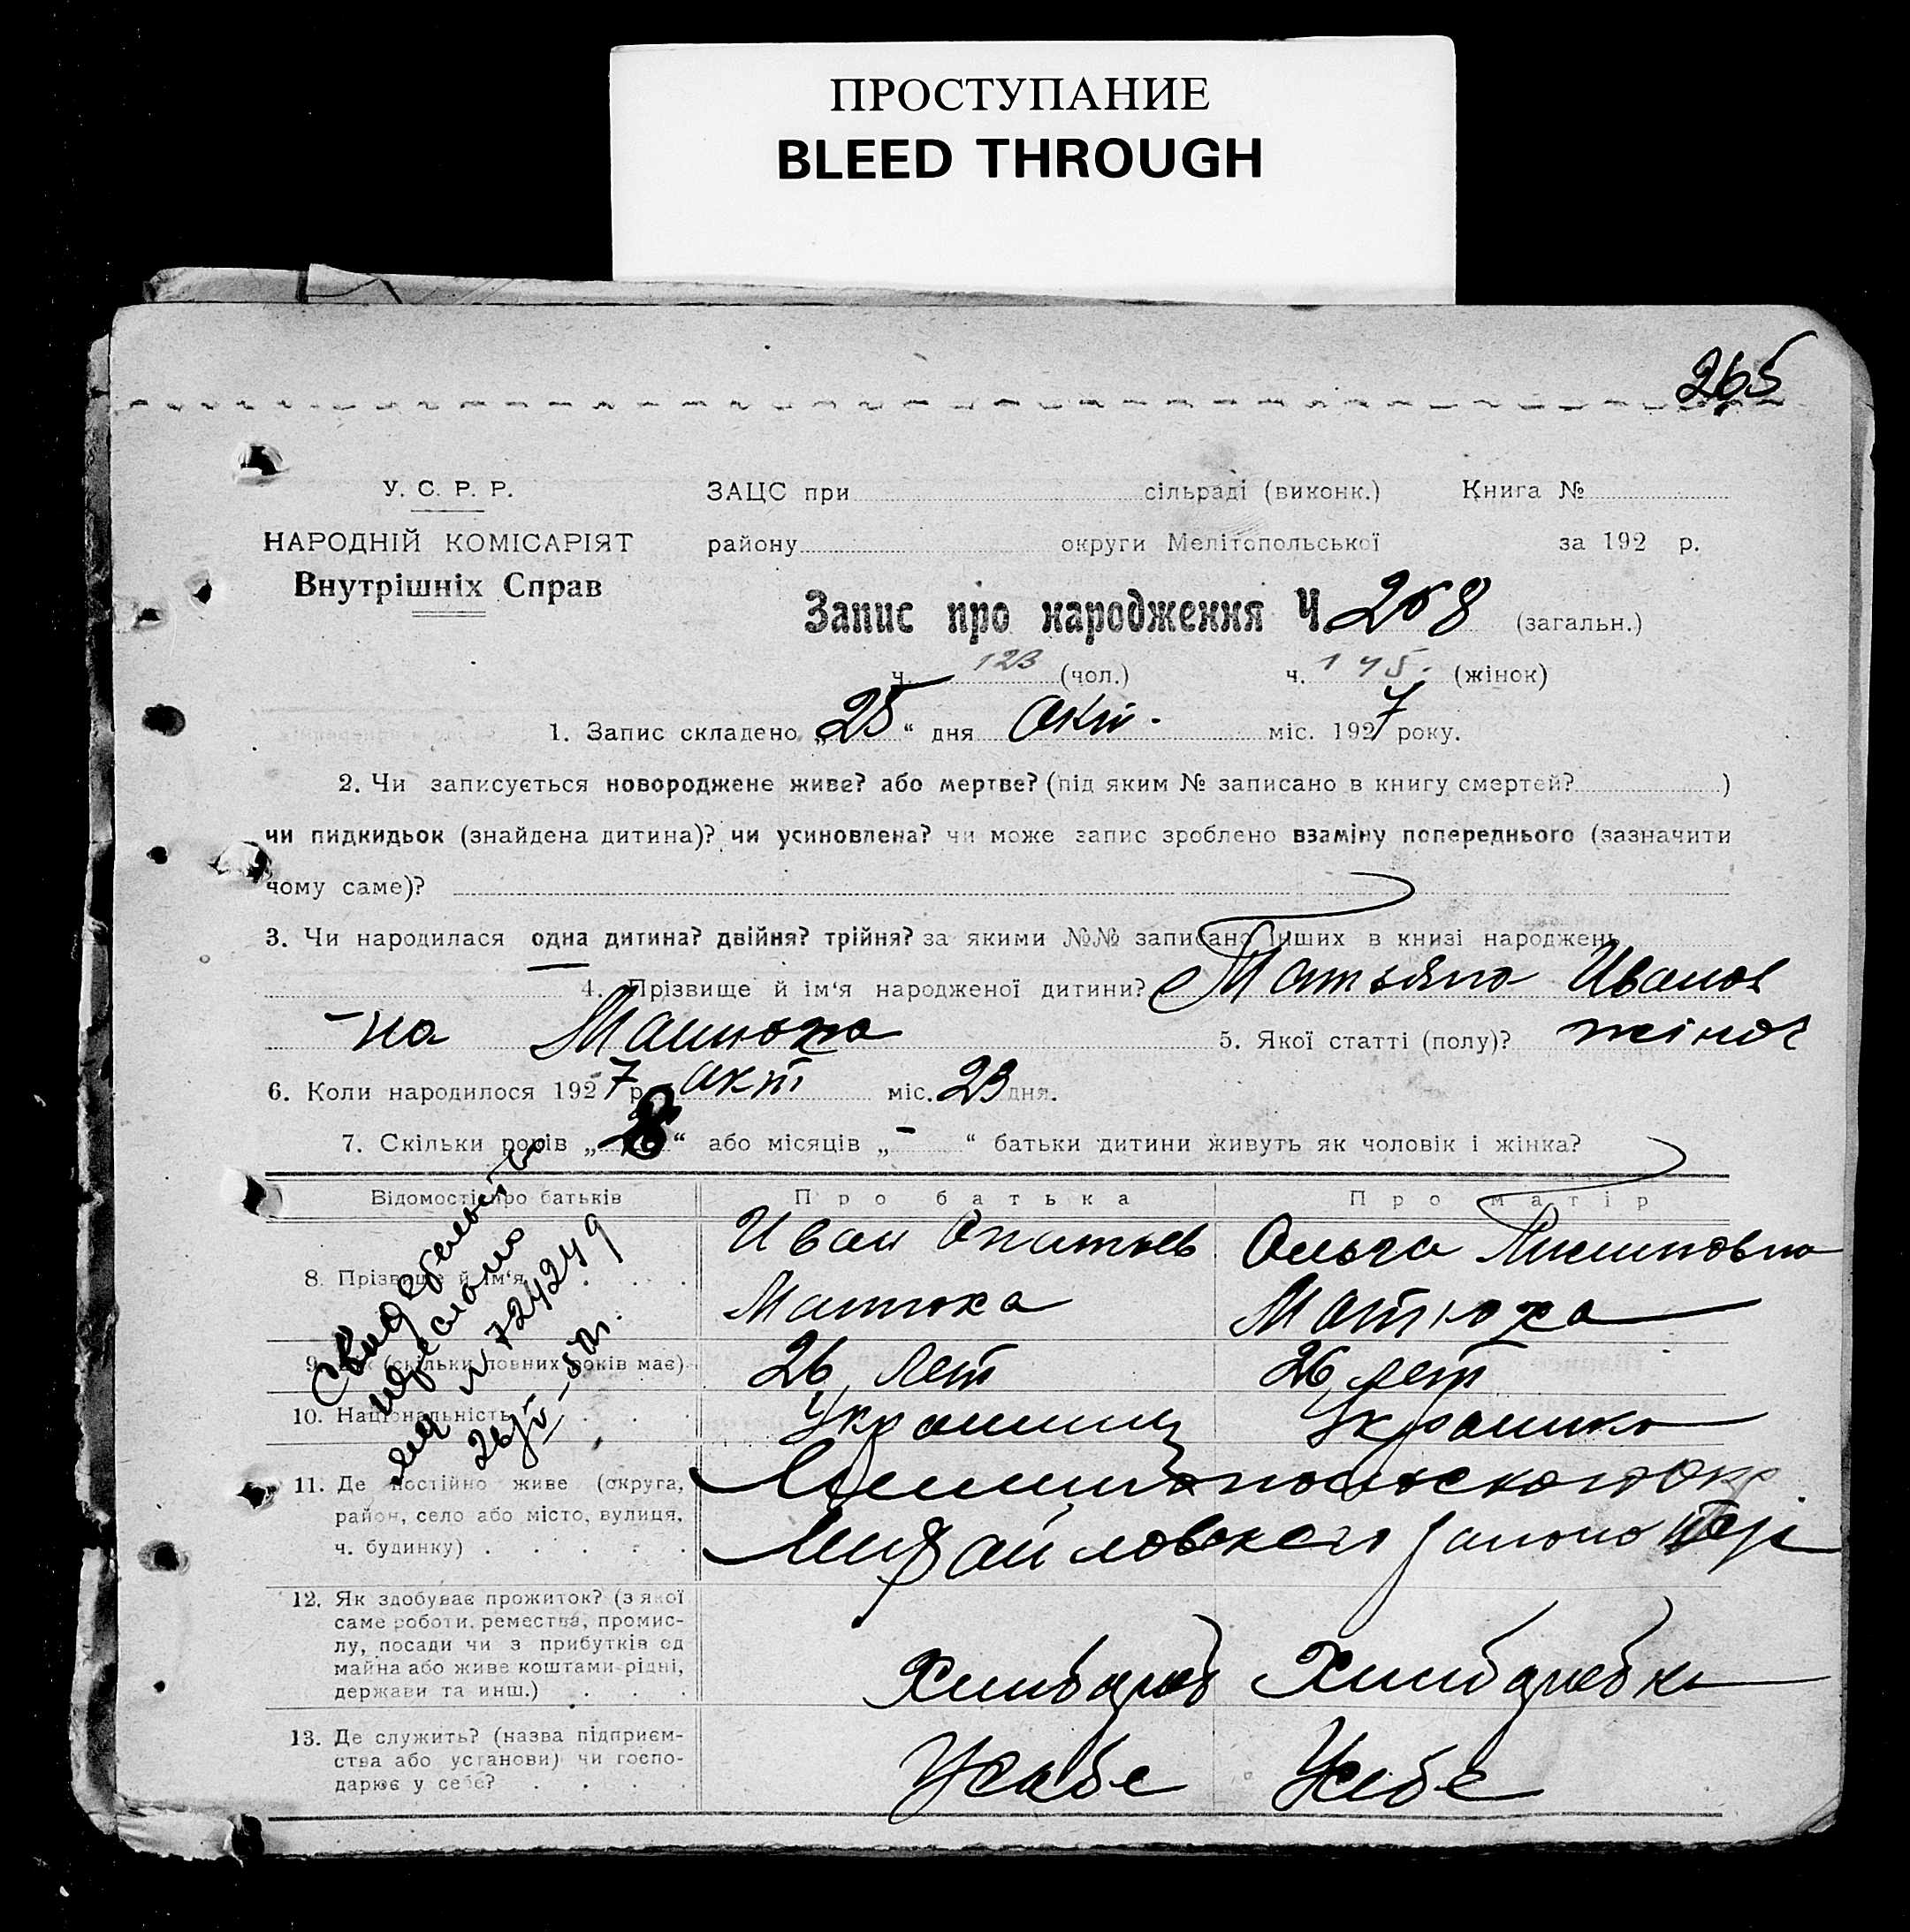 ПРОСТУПАНИЕ
BLEED THROUGH
265
У. С. Р. Р.
НАРОДНІЙ КОМІСАРІЯТ
Внутрішніх Справ
ЗАЦС при сільраді (виконк.) Книга №
району округи Мелітопольської за 192 р.
Запис про народження Ч. 268 (загальн.)
ч. 123 (чол.) ч. 145. (жінок)
1. Запис складено „25“ дня окт. міс. 1927 року.
2. Чи записується новороджене живе? або мертве? (під яким № записано в книгу смертей? )
чи пидкидьок (знайдена дитина)? чи усиновлена? чи може запис зроблено взаміну попереднього (зазначити
чому саме)?
3. Чи народилася одна дитина? двійня? трійня? за якими №№ записано інших в книзі народжень
4. Прізвище й ім‘я народженої дитини? Татьяна Иванов
-на Матюха 5. Якої статті (полу)? жіноч
6. Коли народилося 1927 р. окт міс. 23 дня.
7. Скільки років „8“ або місяців „-“ батьки дитини живуть як чоловік і жінка?
Відомості про батьків Про батька Про матір
8. Прізвище й ім‘я
Иван Ипатьев Ольга
Матюха Матюха
9. Вік (скільки повних років має) 26 лет 26 лет
10. Національність Украинец Украинка
11. Де постійно живе (округа,
район, село або місто, вулиця,
ч. будинку)
Мелитопольского Окр
Михайловского района
12. Як здобуває прожиток? (з якої
саме роботи, ремества, промис-
лу, посади чи з прибутків од
майна або живе коштами рідні,
держави та инш.)
Хлебороб Хлеборобка
13. Де служить? (назва підприєм-
ства або установи) чи госпо-
дарює у себе?
У себе У себе
Свидетельство
№ 724249